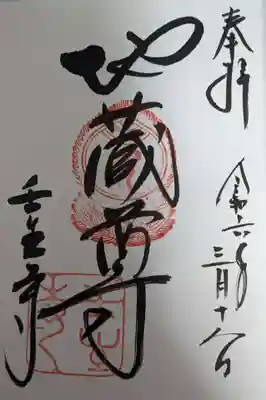 奉拝
令和六年
三月十八日
地蔵尊
壬生寺